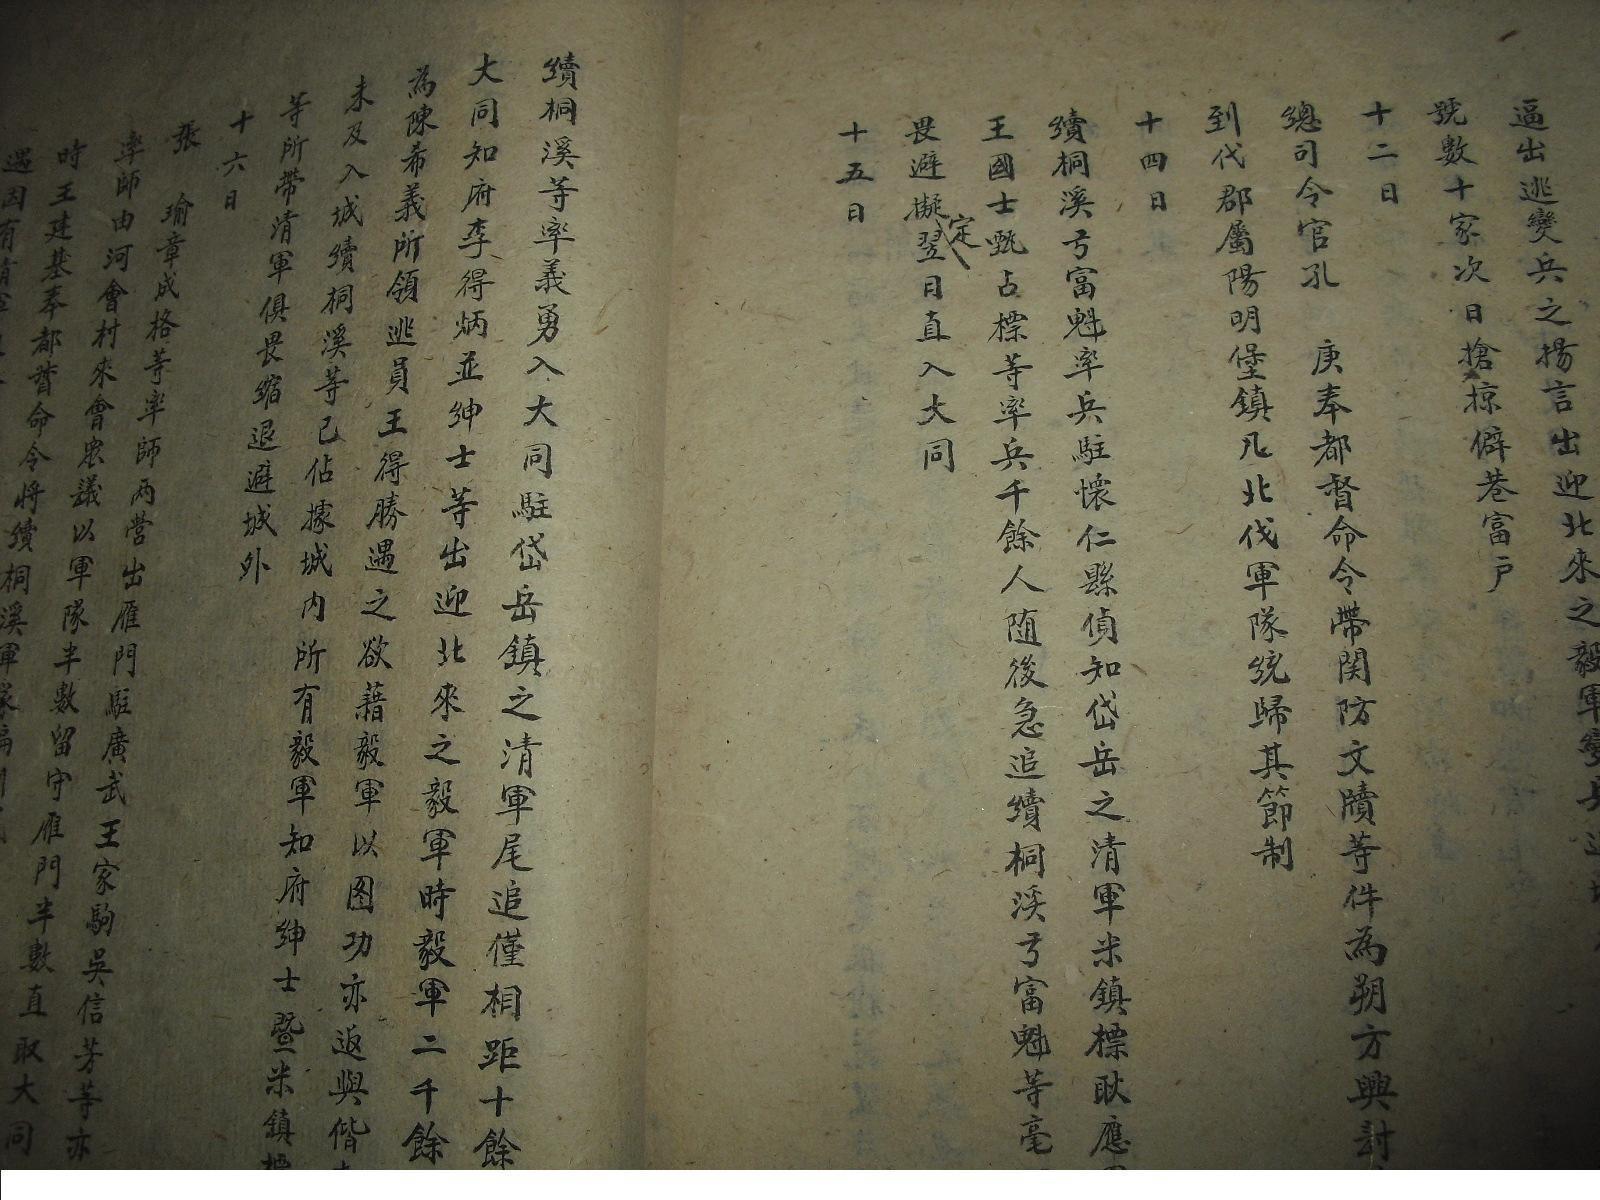 逼出逃變兵之揚言出迎北來之毅軍變兵
號數十家次日搶掠僻巷富戶
十二日
總司令官孔　庚奉都督命令帶関防文牘等件為朔方興討
到代郡屬陽明堡鎮凡北伐軍隊統歸其節制
十四日
續桐溪弓富魁率兵駐懷仁縣偵知岱岳之清軍米鎮標耿應
王國士甄占標等率兵千餘人随後急追續桐溪弓富魁等毫
畏避擬定翌日直入大同
十五日
續桐溪等率義勇入大同駐岱岳鎮之清軍尾追僅相距十餘
大同知府李得炳並紳士等出迎北來之毅軍時毅軍二千餘
為陳希義所領逃員王得勝遇之欲藉毅軍以图功亦返與偕
未及入城續桐溪等已佔據城内所有毅軍知府紳士暨米鎮標
等所帶清軍俱畏縮退避城外
十六日
張　瑜章成格等率師两营出雁門駐廣武王家駒吳信芳等亦
率師由河會村來會衆議以軍隊半數留守雁門半數直取大同
時王建基奉都督命令将續桐溪軍隊
遇因有